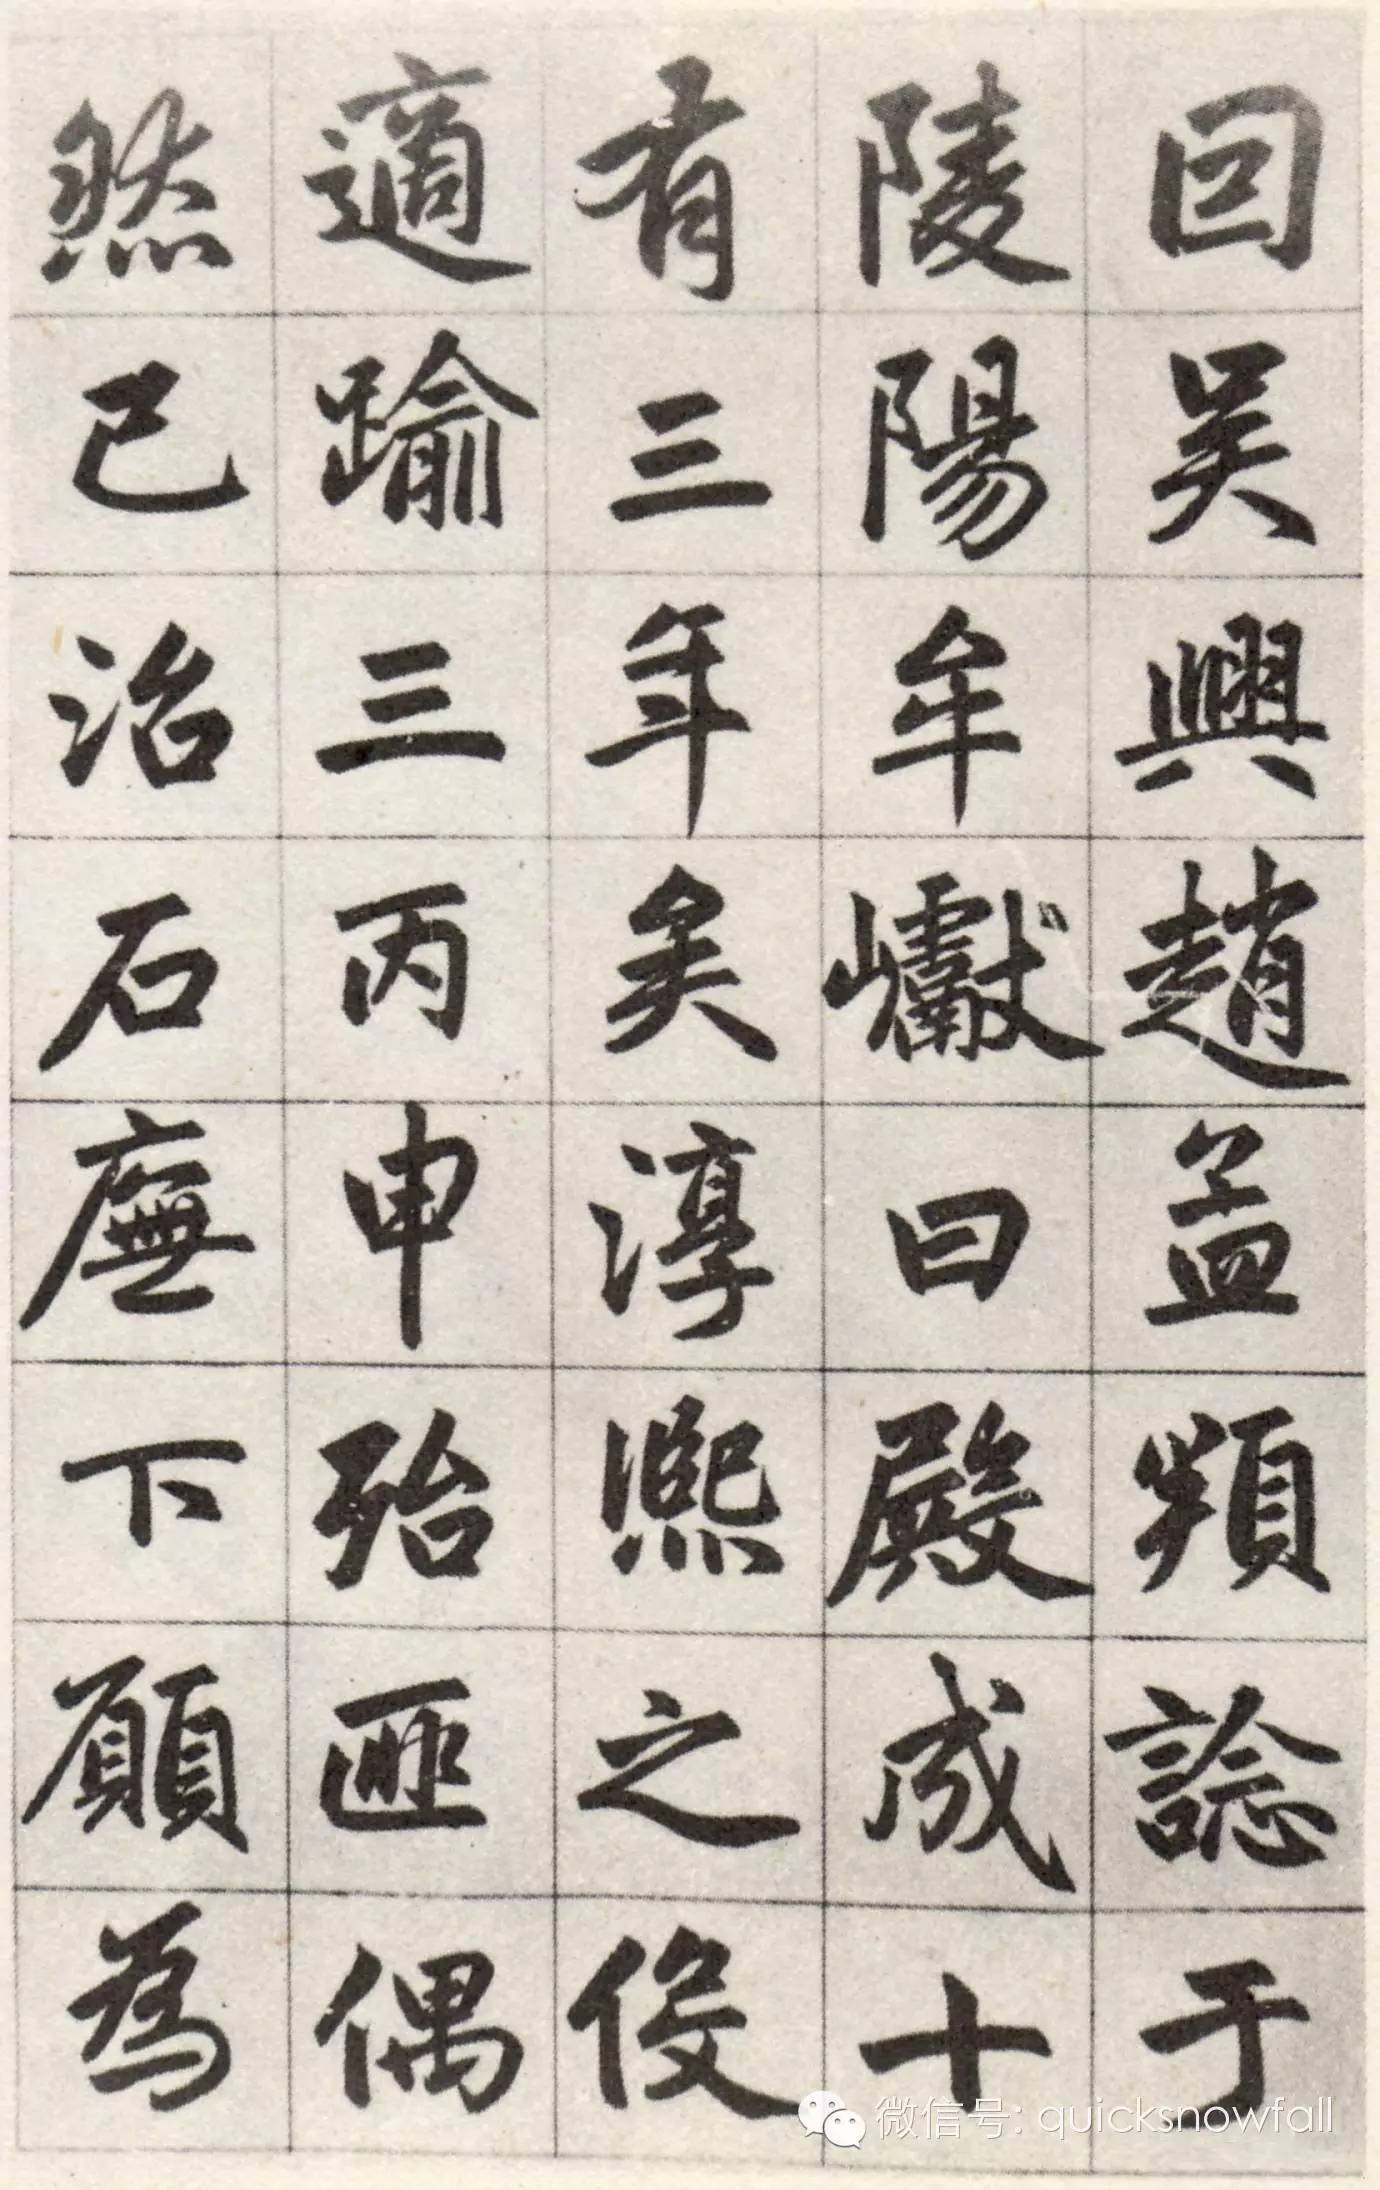 回吳興趙孟頫諗于
陵陽牟巘曰殿成十
有三年矣淳熙之役
適踰三丙申殆匪偶
然已治石廡下願為
微信号: quicksnowfall